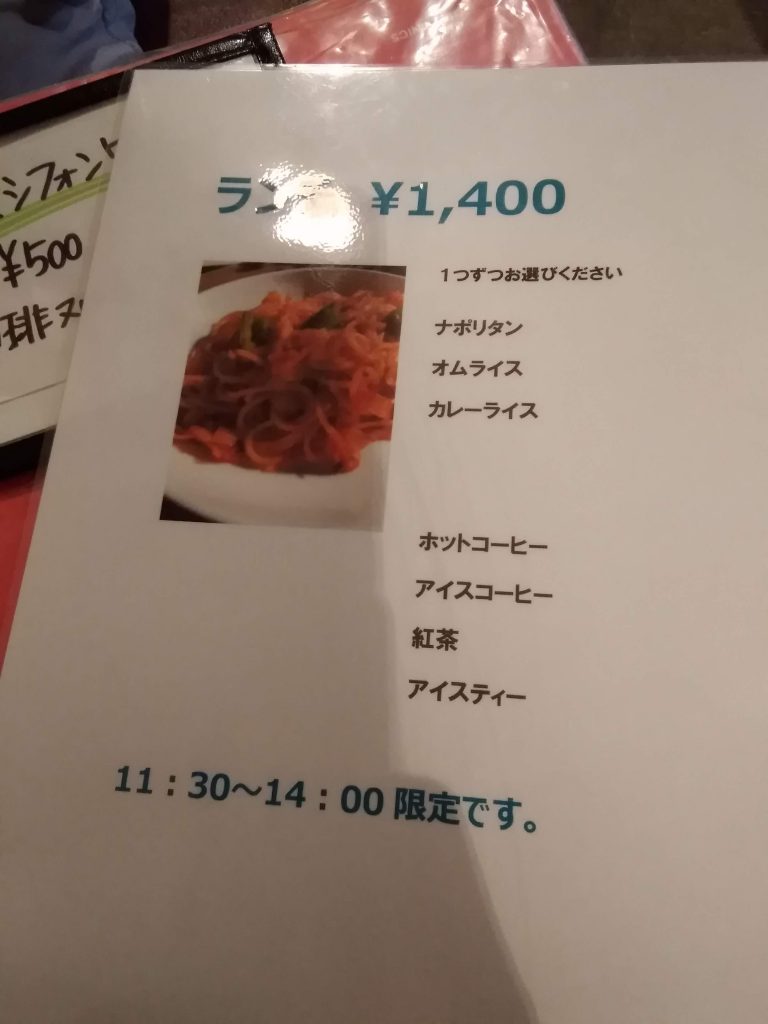 シフォン
¥500
ラン ¥1,400
1つずつお選びください
ナポリタン
オムライス
カレーライス
ホットコーヒー
アイスコーヒー
紅茶
アイスティー
11：30～14：00 限定です。